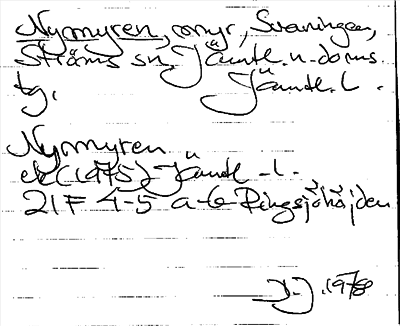 Nymyren, myr, Svaningen,
Ströms sn, Jämtl. n. doms
tg. Jämtl. l.
Nymyren
ek (1975) Jämtl. l.
21F 4-5 a-b Ringsjöhöjden
J.J. 1978